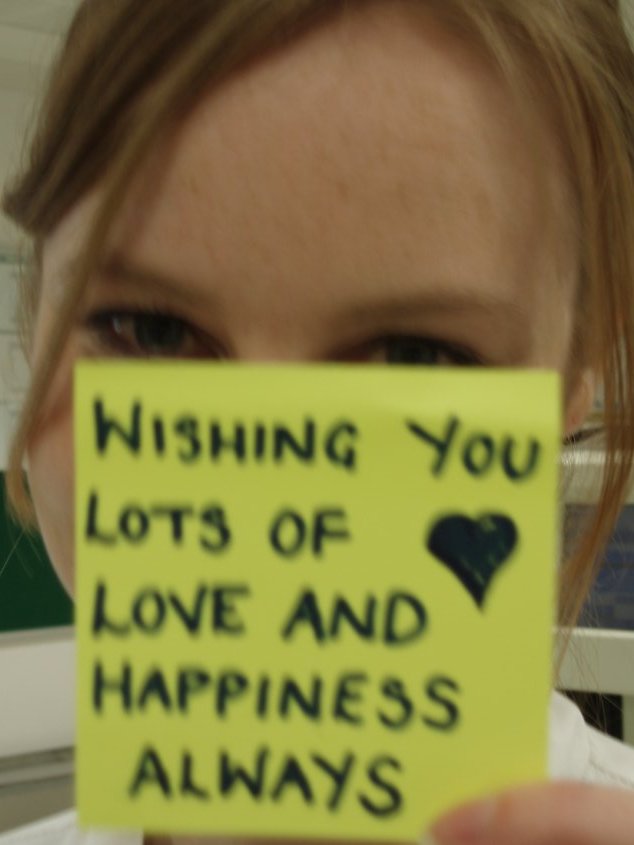 WISHING YOU
LOTS OF
LOVE AND
HAPPINESS
ALWAYS